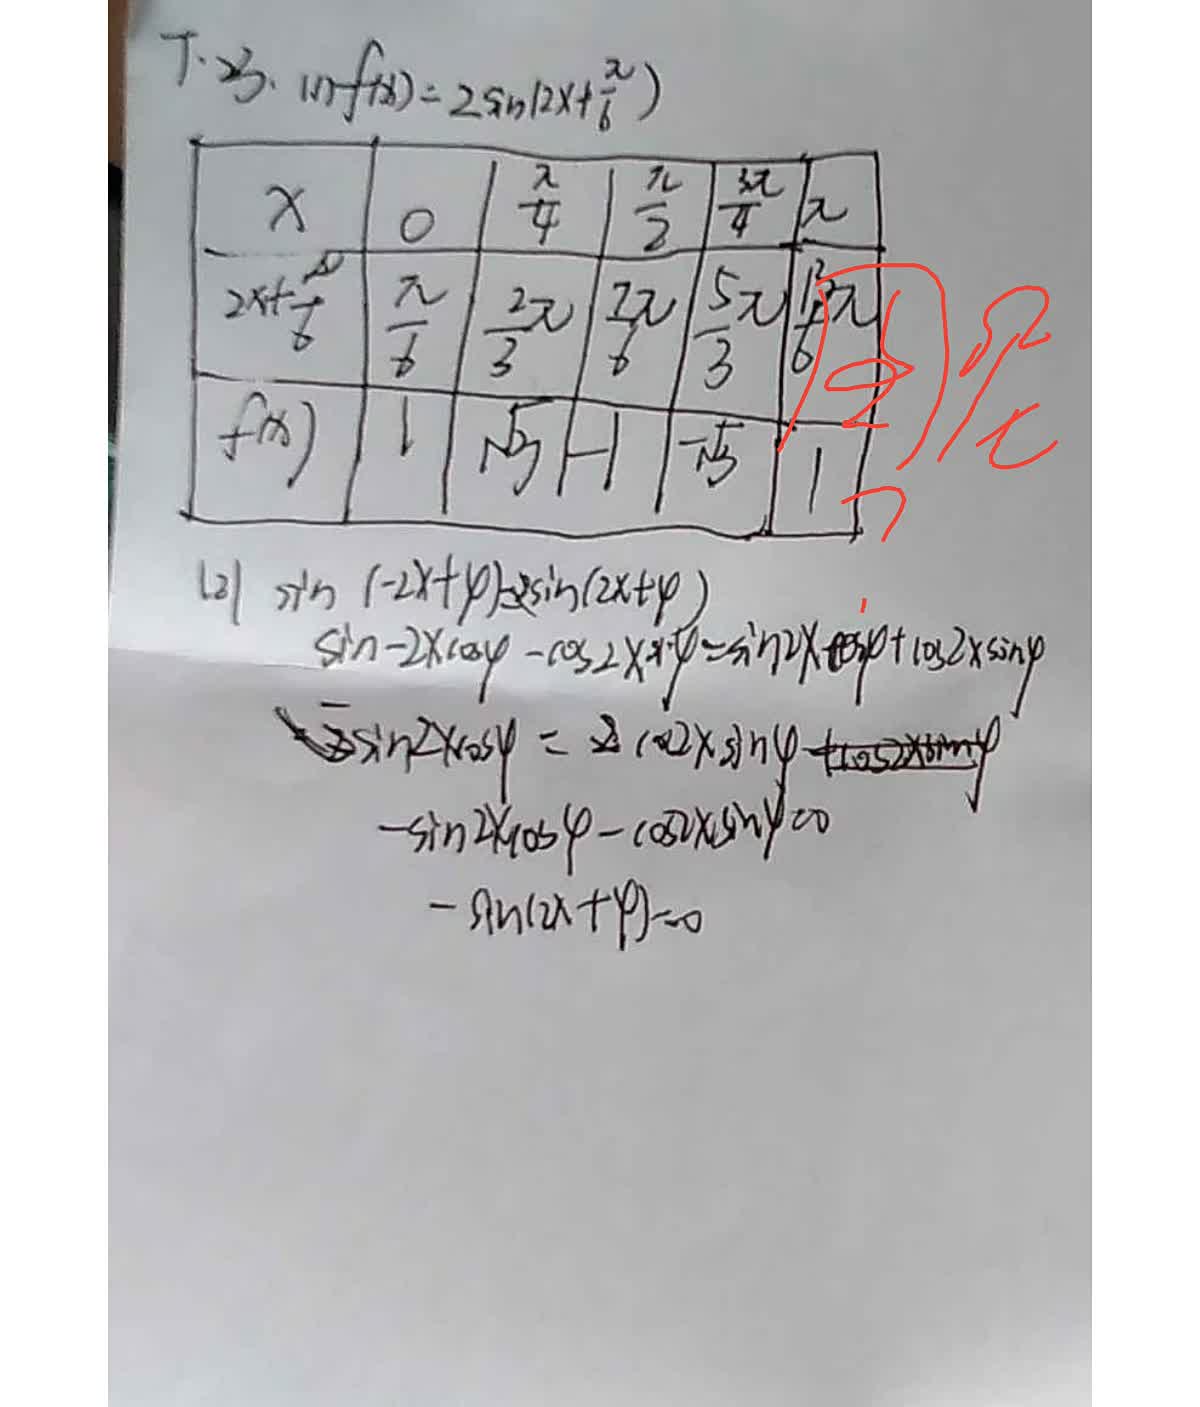 T.23. (1) f(x)=2sin(2x+π/6)
x 0 π/4 π/2 3π/4 π
2x+π/6 π/6 2/3π 7π/6 5/3π 13/6π
f(x) 1 √3 -1 -√3 1
(2) sin(-2x+φ)=sin(2x+φ)
sin-2xcosφ-cos2xsinφ=sin2xcosφ+cos2xsinφ
-sin2xcosφ=cos2xsinφ
-sin2xcosφ-cos2xsinφ=0
-sin(2x+φ)=0